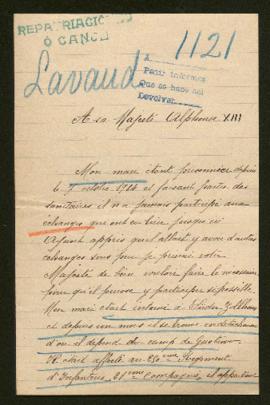 REPATRIACIÓN
Ó CANGE
1121
Lavaud
A
Pedir informes
Que se hace del
Devolver
A sa Majesté Alphonse XIII
Mon mari étant prisonnier depuis
le 7 octobre 1914 et faisant partie des
sanitaires il n'a jamais participé aux
échanges qui ont eu lieu jusqu'ici
Ayant appris qu'il allait y avoir d'autres
échanges sous peu je prierai votre
Majesté de bien vouloir faire le nécessaire
pour qu'il puisse y participer si possible.
Mon mari était interné à
et depuis un mois il se trouve
d'où il dépend du camp de Gustrow
Il était affecté au 250ème Régiment
d'Infanterie 21ème Compagnie, il appartient